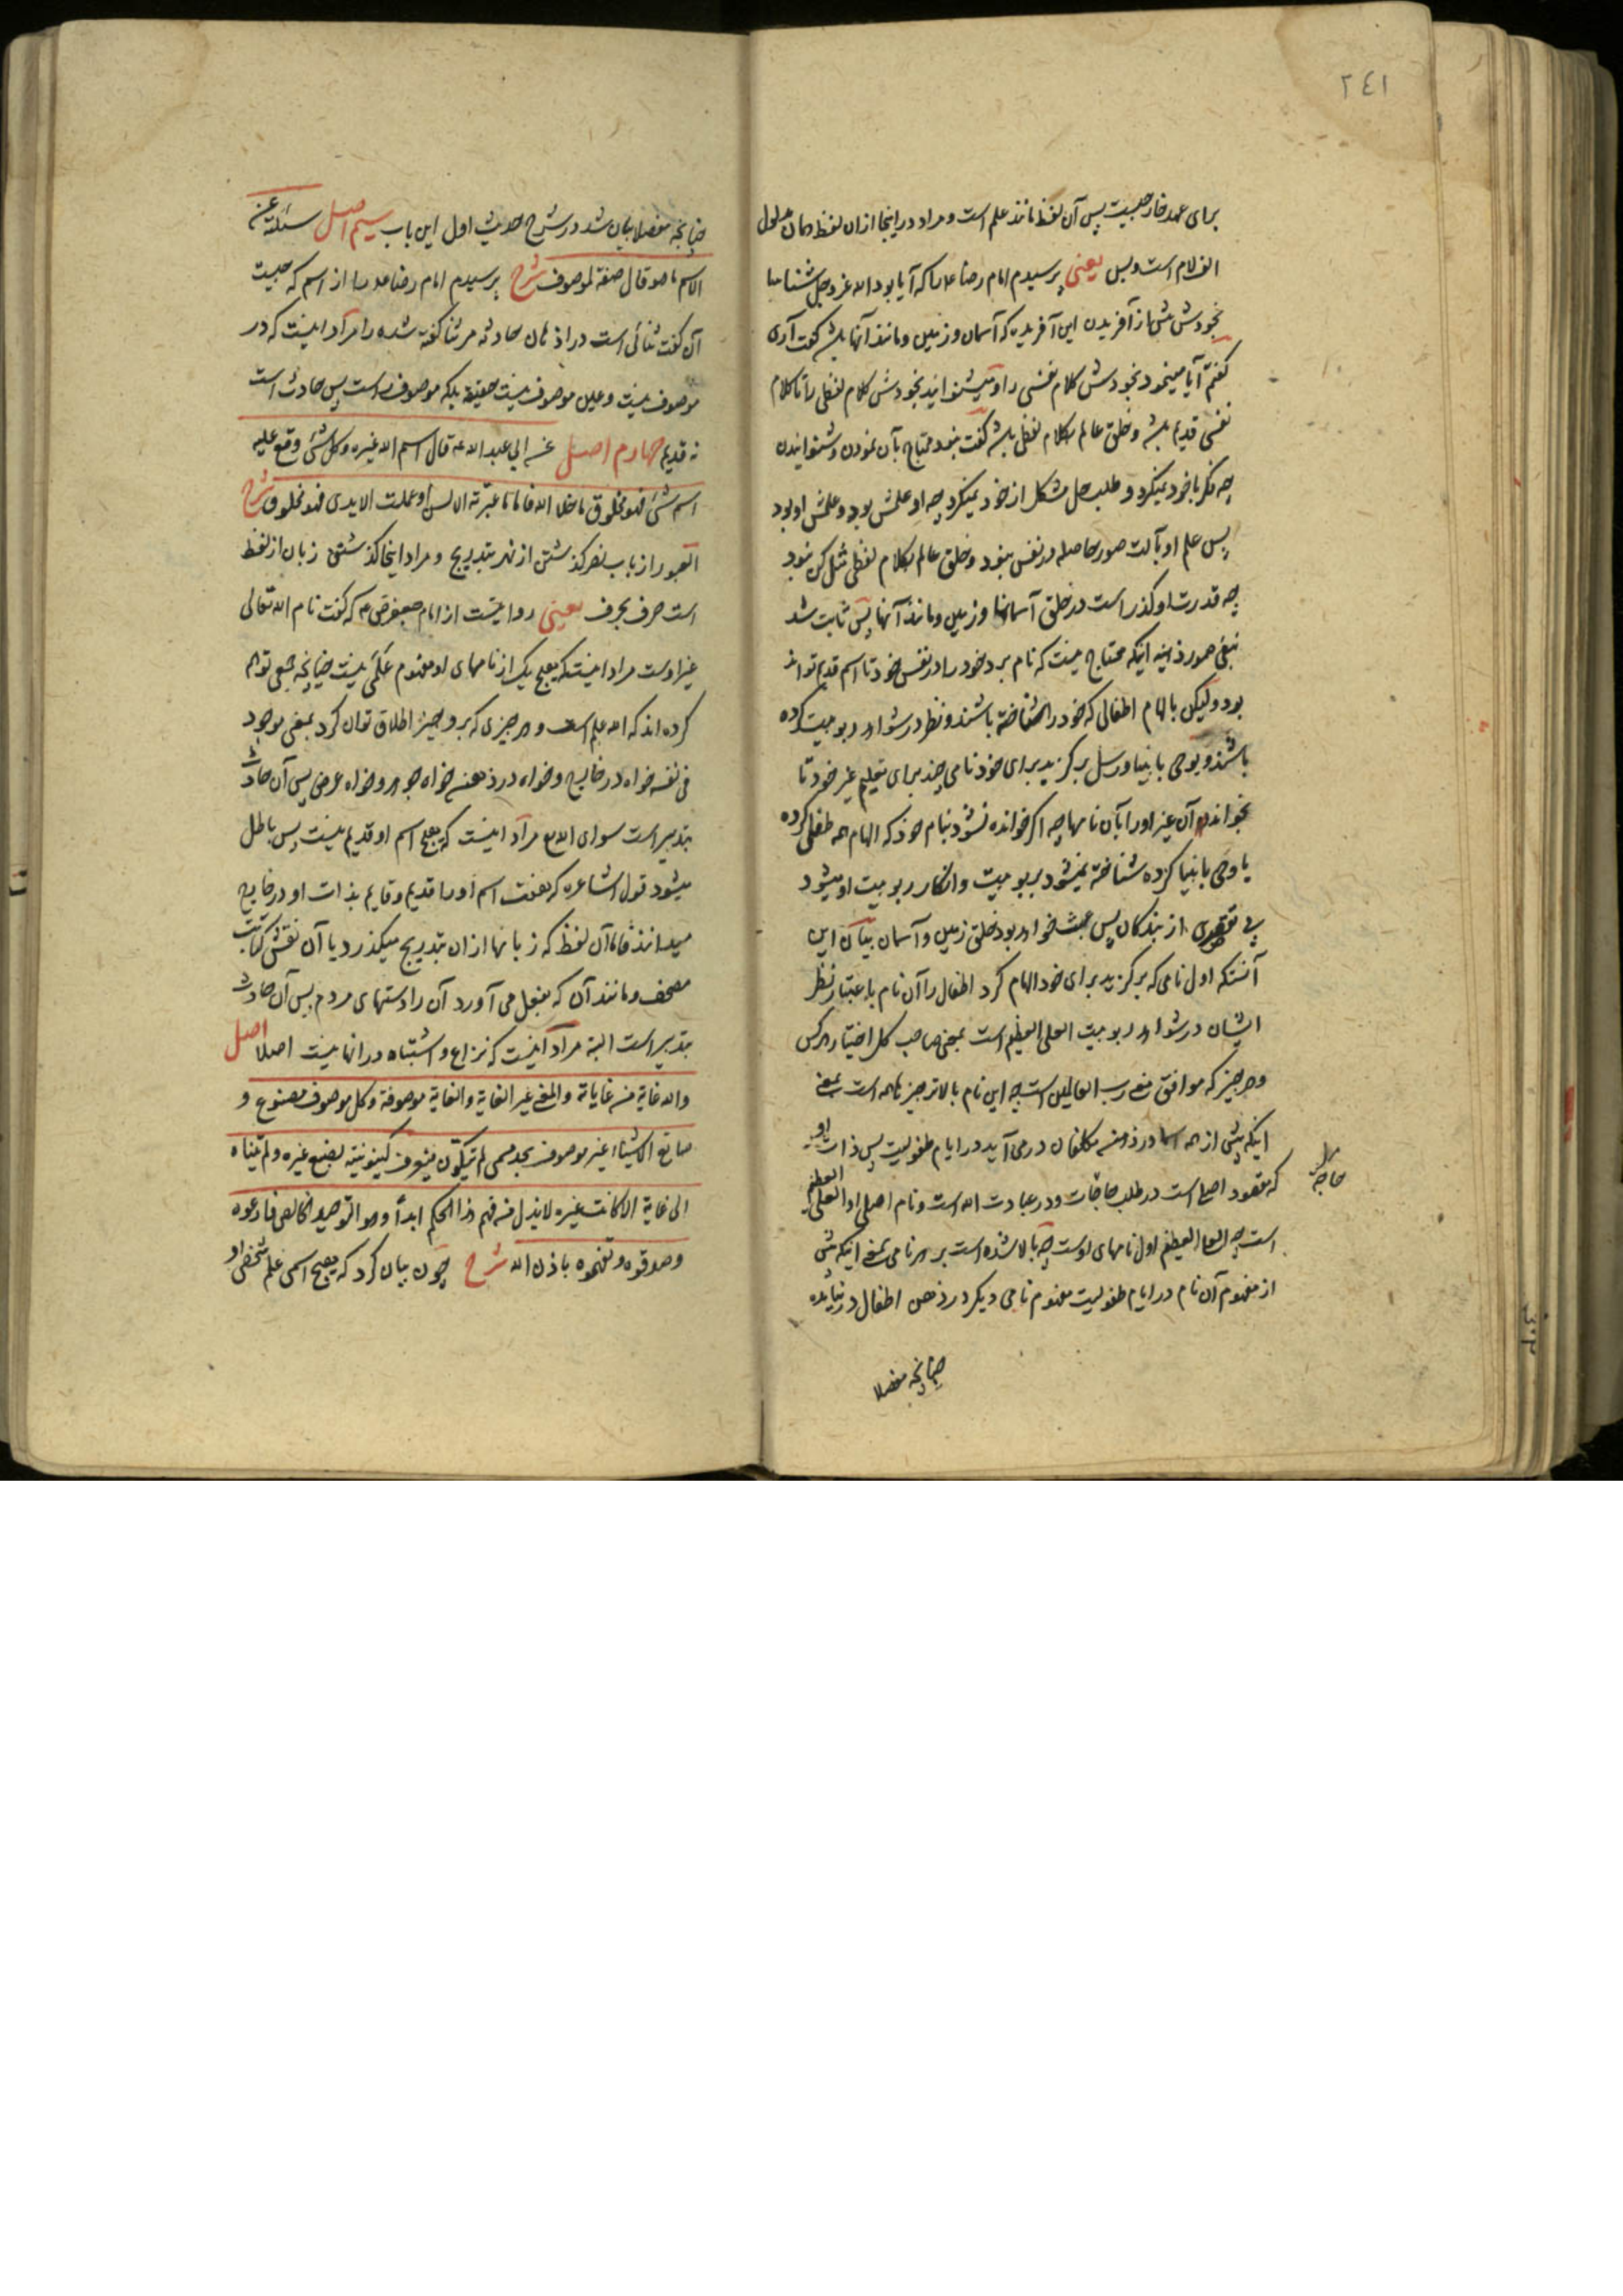 ٢٤١
برای عهد خارجیست پس آن لفظ مانند علم است و مراد در اینجا از ان لفظ همان مدلول
الف لام است و بس یعنی پرسیدم امام رضا ع را که آیا بود الله عز و جل شناسا
بخودش پیش از آفریدن این آفریده که آسمان و زمین و مانند آنها باشد گفت آری
گفتم آیا مینمود بخودش کلام نفسی را و میشنوانید بخودش کلام لفظی را تا کلام
نفسی قدیم باشد و خلق عالم بکلام لفظی باشد گفت نبود محتاج بآن نمودن و شنوانیدن
چه فکر با خود نمیکرد و طلب حل مشکل از خود نمیکرد چه او علمش بود و علمش او بود
پس علم او بآلت صور حاصله در نفس نبود و خلق عالم بکلام لفظی مثل کن نبود
چه قدرت او گذراست در خلق آسمانها و زمین و مانند آنها پس ثابت شد
نفی صور ذهنیه اینکه محتاج نیست که نام برد خود را در نفس خود تا اسم قدیم تواند
بود ولیکن بالهام اطفالی که خود را شناخته باشند و نظر در شواهد ربوبیت کرده
باشند و بوحی بانبیا و رسل برگزید برای خود نامی چند برای تعلیم غیر خود تا
بخواند آن غیر او را بآن نامها چه اگر خوانده نشود بنام خود که الهام همه طفلی کرده
یا وحی بانبیا کرده شناخته نمیشود بربوبیت و انکار ربوبیت او میشود
بی تقصیری از بندگان پس عبث خواهد بود خلق زمین و آسمان بیان این
آنستکه اول نامی که برگزید برای خود الهام کرد اطفال را آن نام باعتبار نظر
ایشان در شواهد ربوبیت العلی العظیم است بمعنی صاحب کل اختیار هر کس
و هر چیز که موافق معنی رب العالمین است چه این نام بالاتر چیز نامه است بمعنی
اینکه پیش از همه اسما در ذهن مکلفان در می آید در ایام طفولیت پس ذات او
که مقصود اصلی است در طلب حاجات و در عبادت الله است و نام اصلی او العلی العظیم
حاجه
است چه العلی العظیم اول نامهای اوست چه بالا شده است بر هر نامی بمعنی اینکه پیش
از مفهوم آن نام در ایام طفولیت مفهوم نامی دیگر در ذهن اطفال در نیامده
چنانچه مفصلا
چنانچه مفصلا بیان شد در شرح حدیث اول این باب سیم اصل سئلته عن
الاسم ما هو قال صفة لموصوف شرح پرسیدم امام رضا ع را از اسم که چیست
آن گفت ثنائی است در اذهان حادثه مر ثنا گفته شده را مراد اینست که در
موصوف نیست و عین موصوف نیست حقیقة بلکه موصوف است پس حادث است
نه قدیم چهارم اصل عن ابی عبد الله ع قال اسم الله غیره و کل شئ وقع علیه
اسم شئ فهو مخلوق ما خلا الله فاما ما عبّرته الالسن او عملت الایدی فهو مخلوق شرح
العبور از باب نصر گذشتن از نهر بتدریج و مراد اینجا گذشتن زبان از لفظ
است حرف بحرف یعنی روایتست از امام جعفر ص ع که گفت نام الله تعالی
غیر اوست مراد اینستکه هیچ یک از نامهای او مفهوم علمی نیست چنانچه جمعی توهم
کرده اند که الله علم است و هر چیزی که بر و چیز اطلاق توان کرد بمعنی موجود
فی نفسه خواه در خارج و خواه در ذهن خواه جوهر و خواه عرض پس آن حادث
بتدبیر است سوای الله ع مراد اینست که هیچ اسم او قدیم نیست پس باطل
میشود قول اشاعره که هفت اسم او را قدیم و قایم بذات او در خارج
میدانند فاما آن لفظ که زبانها از ان بتدریج میگذرد یا آن نقش کتابت
مصحف و مانند آن که بفعل می آورد آن را دستهای مردم پس آن حادث
بتدبیر است البته مراد اینست که نزاع و اشتباه در انها نیست اصلا اصل
والله غایة من غایاته والمغیی غیر الغایة والغایة موصوفة وکل موصوف مصنوع و
صانع الاشیاء غیر موصوف بحد مسمی لم یتکوّن فیعرف کینونیته بصنع غیره ولم یتناه
الی غایة الا کانت غیره لا یذل من فهم هذا الحکم ابداً وهو التوحید الخالص فادعوه
وصدقوه وتفهموه باذن الله شرح چون بیان کرد که هیچ اسمی علم شخصی او